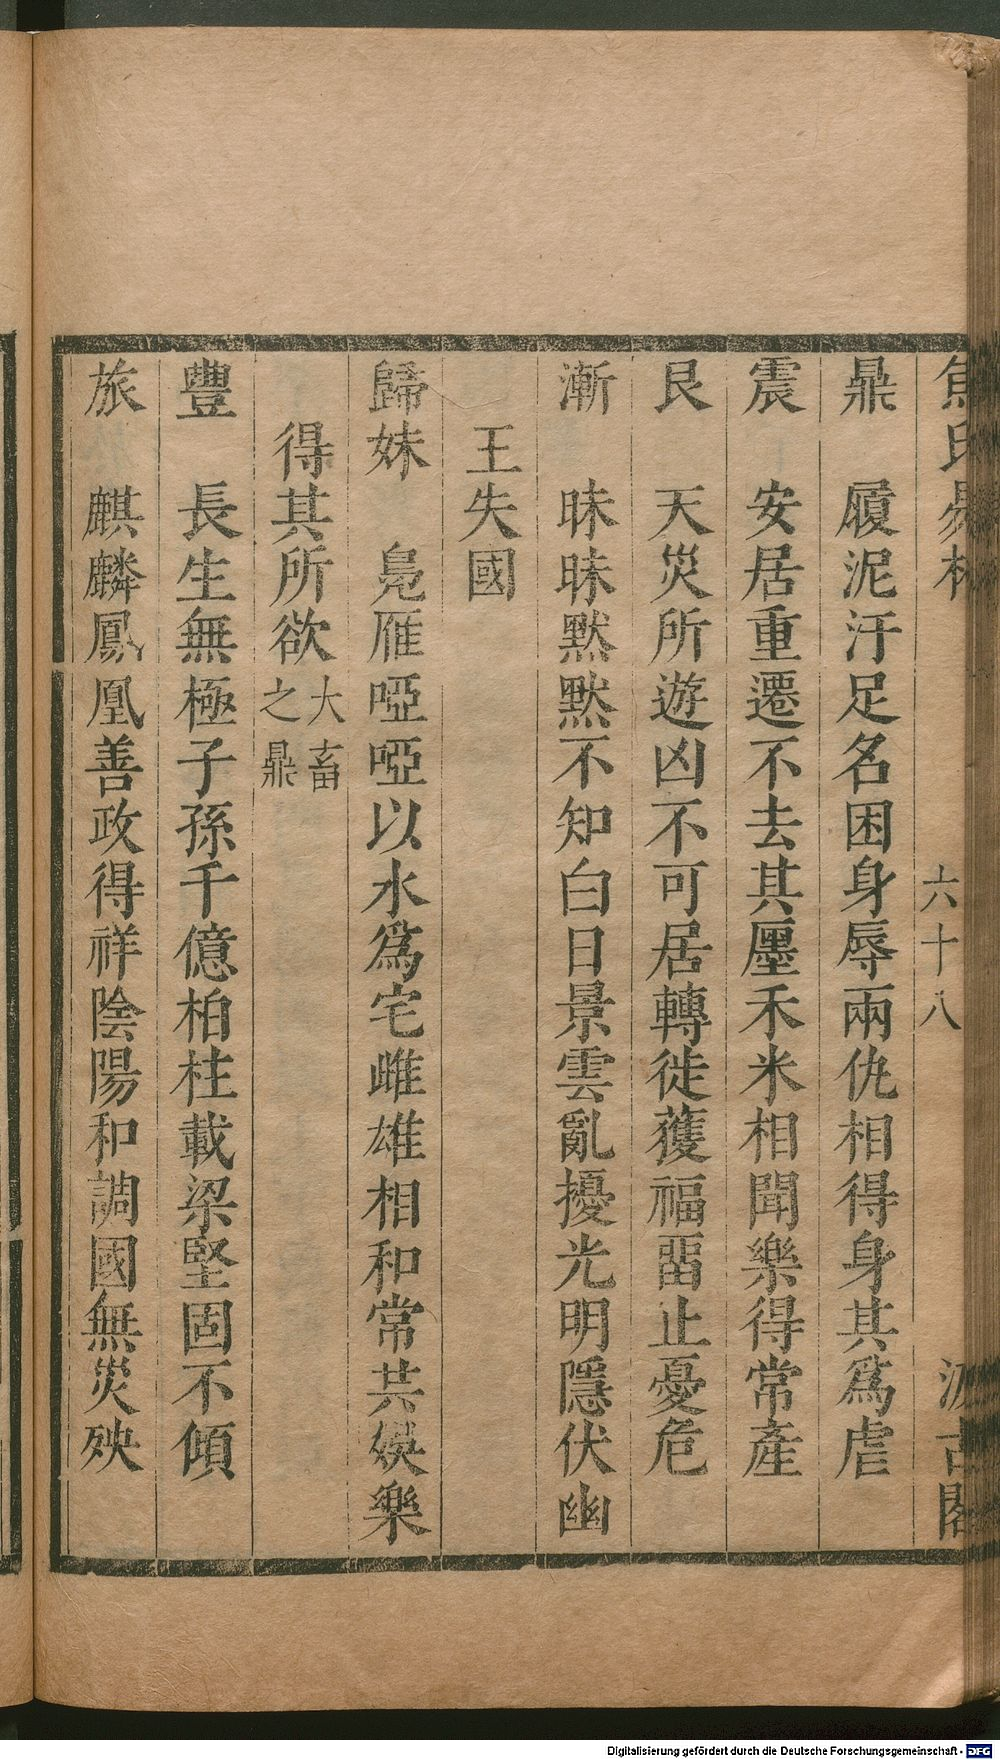 焦氏易林 六十八 汲古閣
鼎 履泥汙足名困身辱兩仇相得身其爲虐
震 安居重遷不去其廛禾米相聞樂得常產
艮 天災所遊凶不可居轉徙獲福畱止憂危
漸 昧昧默默不知白日景雲亂擾光明隱伏幽
王失國
歸妹 鳧雁啞啞以水爲宅雌雄相和常共娛樂
得其所欲 大畜之鼎
豐 長生無極子孫千億柏柱載梁堅固不傾
旅 麒麟鳳凰善政得祥陰陽和調國無災殃
Digitalisierung gefördert durch die Deutsche Forschungsgemeinschaft - DFG